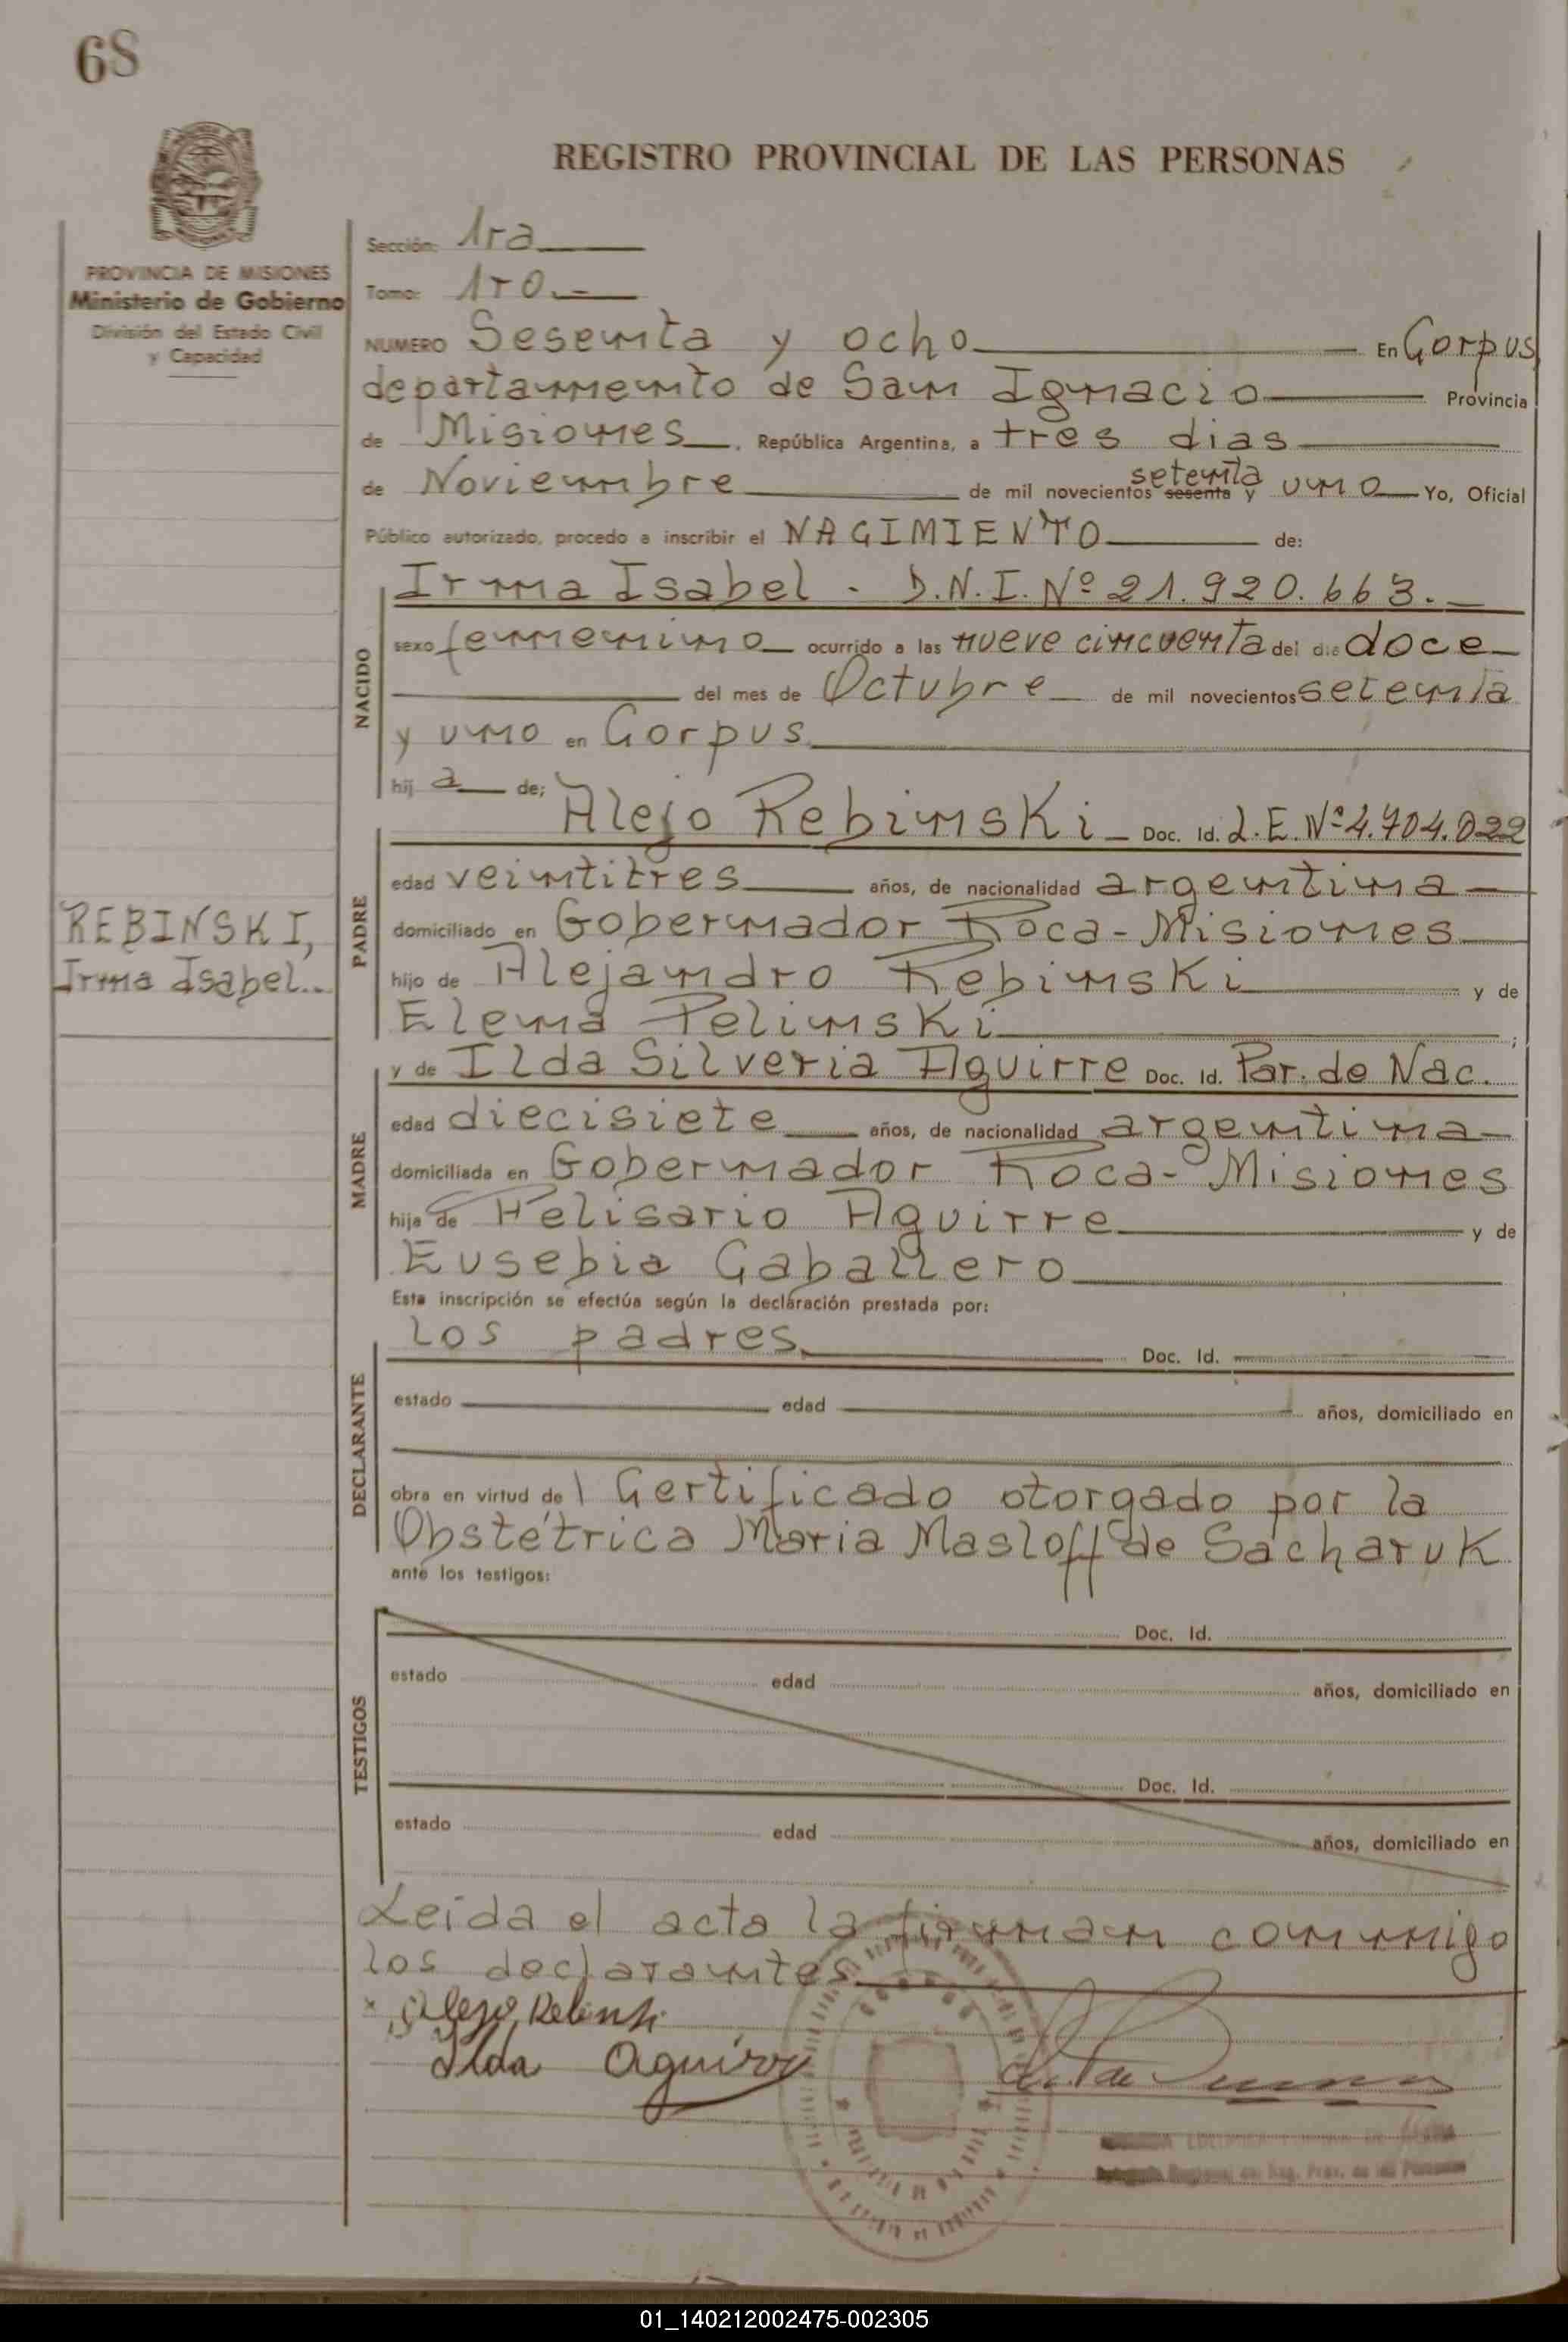 68
REGISTRO PROVINCIAL DE LAS PERSONAS
PROVINCIA DE MISIONES
Ministerio de Gobierno
División del Estado Civil
y Capacidad
Sección: 1ra
Tomo: 1ro.-
NUMERO Sesenta y ocho En Corpus,
departamento de San Ignacio Provincia
de Misiones, República Argentina, a tres dias
de Noviembre de mil novecientos sesenta setenta y uno Yo, Oficial
Público autorizado, procedo a inscribir el NACIMIENTO de:
NACIDO
Irma Isabel - D.N.I. Nº 21.920.663.-
sexo femenino ocurrido a las nueve cincuenta del día doce
del mes de Octubre de mil novecientos setenta
y uno en Corpus
hij a de;
PADRE
Alejo Rebinski - Doc. Id. L.E. Nº 4.704.022
edad veintitres años, de nacionalidad argentina
domiciliado en Gobernador Roca - Misiones
hijo de Alejandro Rebinski y de
Elena Pelinski ;
REBINSKI,
Irma Isabel..
MADRE
y de Ilda Silveria Aguirre Doc. Id. Par. de Nac.
edad diecisiete años, de nacionalidad argentina
domiciliada en Gobernador Roca - Misiones
hija de Felisario Aguirre y de
Eusebia Caballero
Esta inscripción se efectúa según la declaración prestada por:
DECLARANTE
los padres Doc. Id.
estado edad años, domiciliado en
obra en virtud de l Certificado otorgado por la
Obstétrica Maria Masloff de Sacharuk
ante los testigos:
TESTIGOS
Doc. Id.
estado edad años, domiciliado en
Doc. Id.
estado edad años, domiciliado en
Leida el acta la firman conmigo
los declarantes
x Alejo Rebinski
Ilda Aguirre
Reg. Prov. de las Personas
01_140212002475-002305